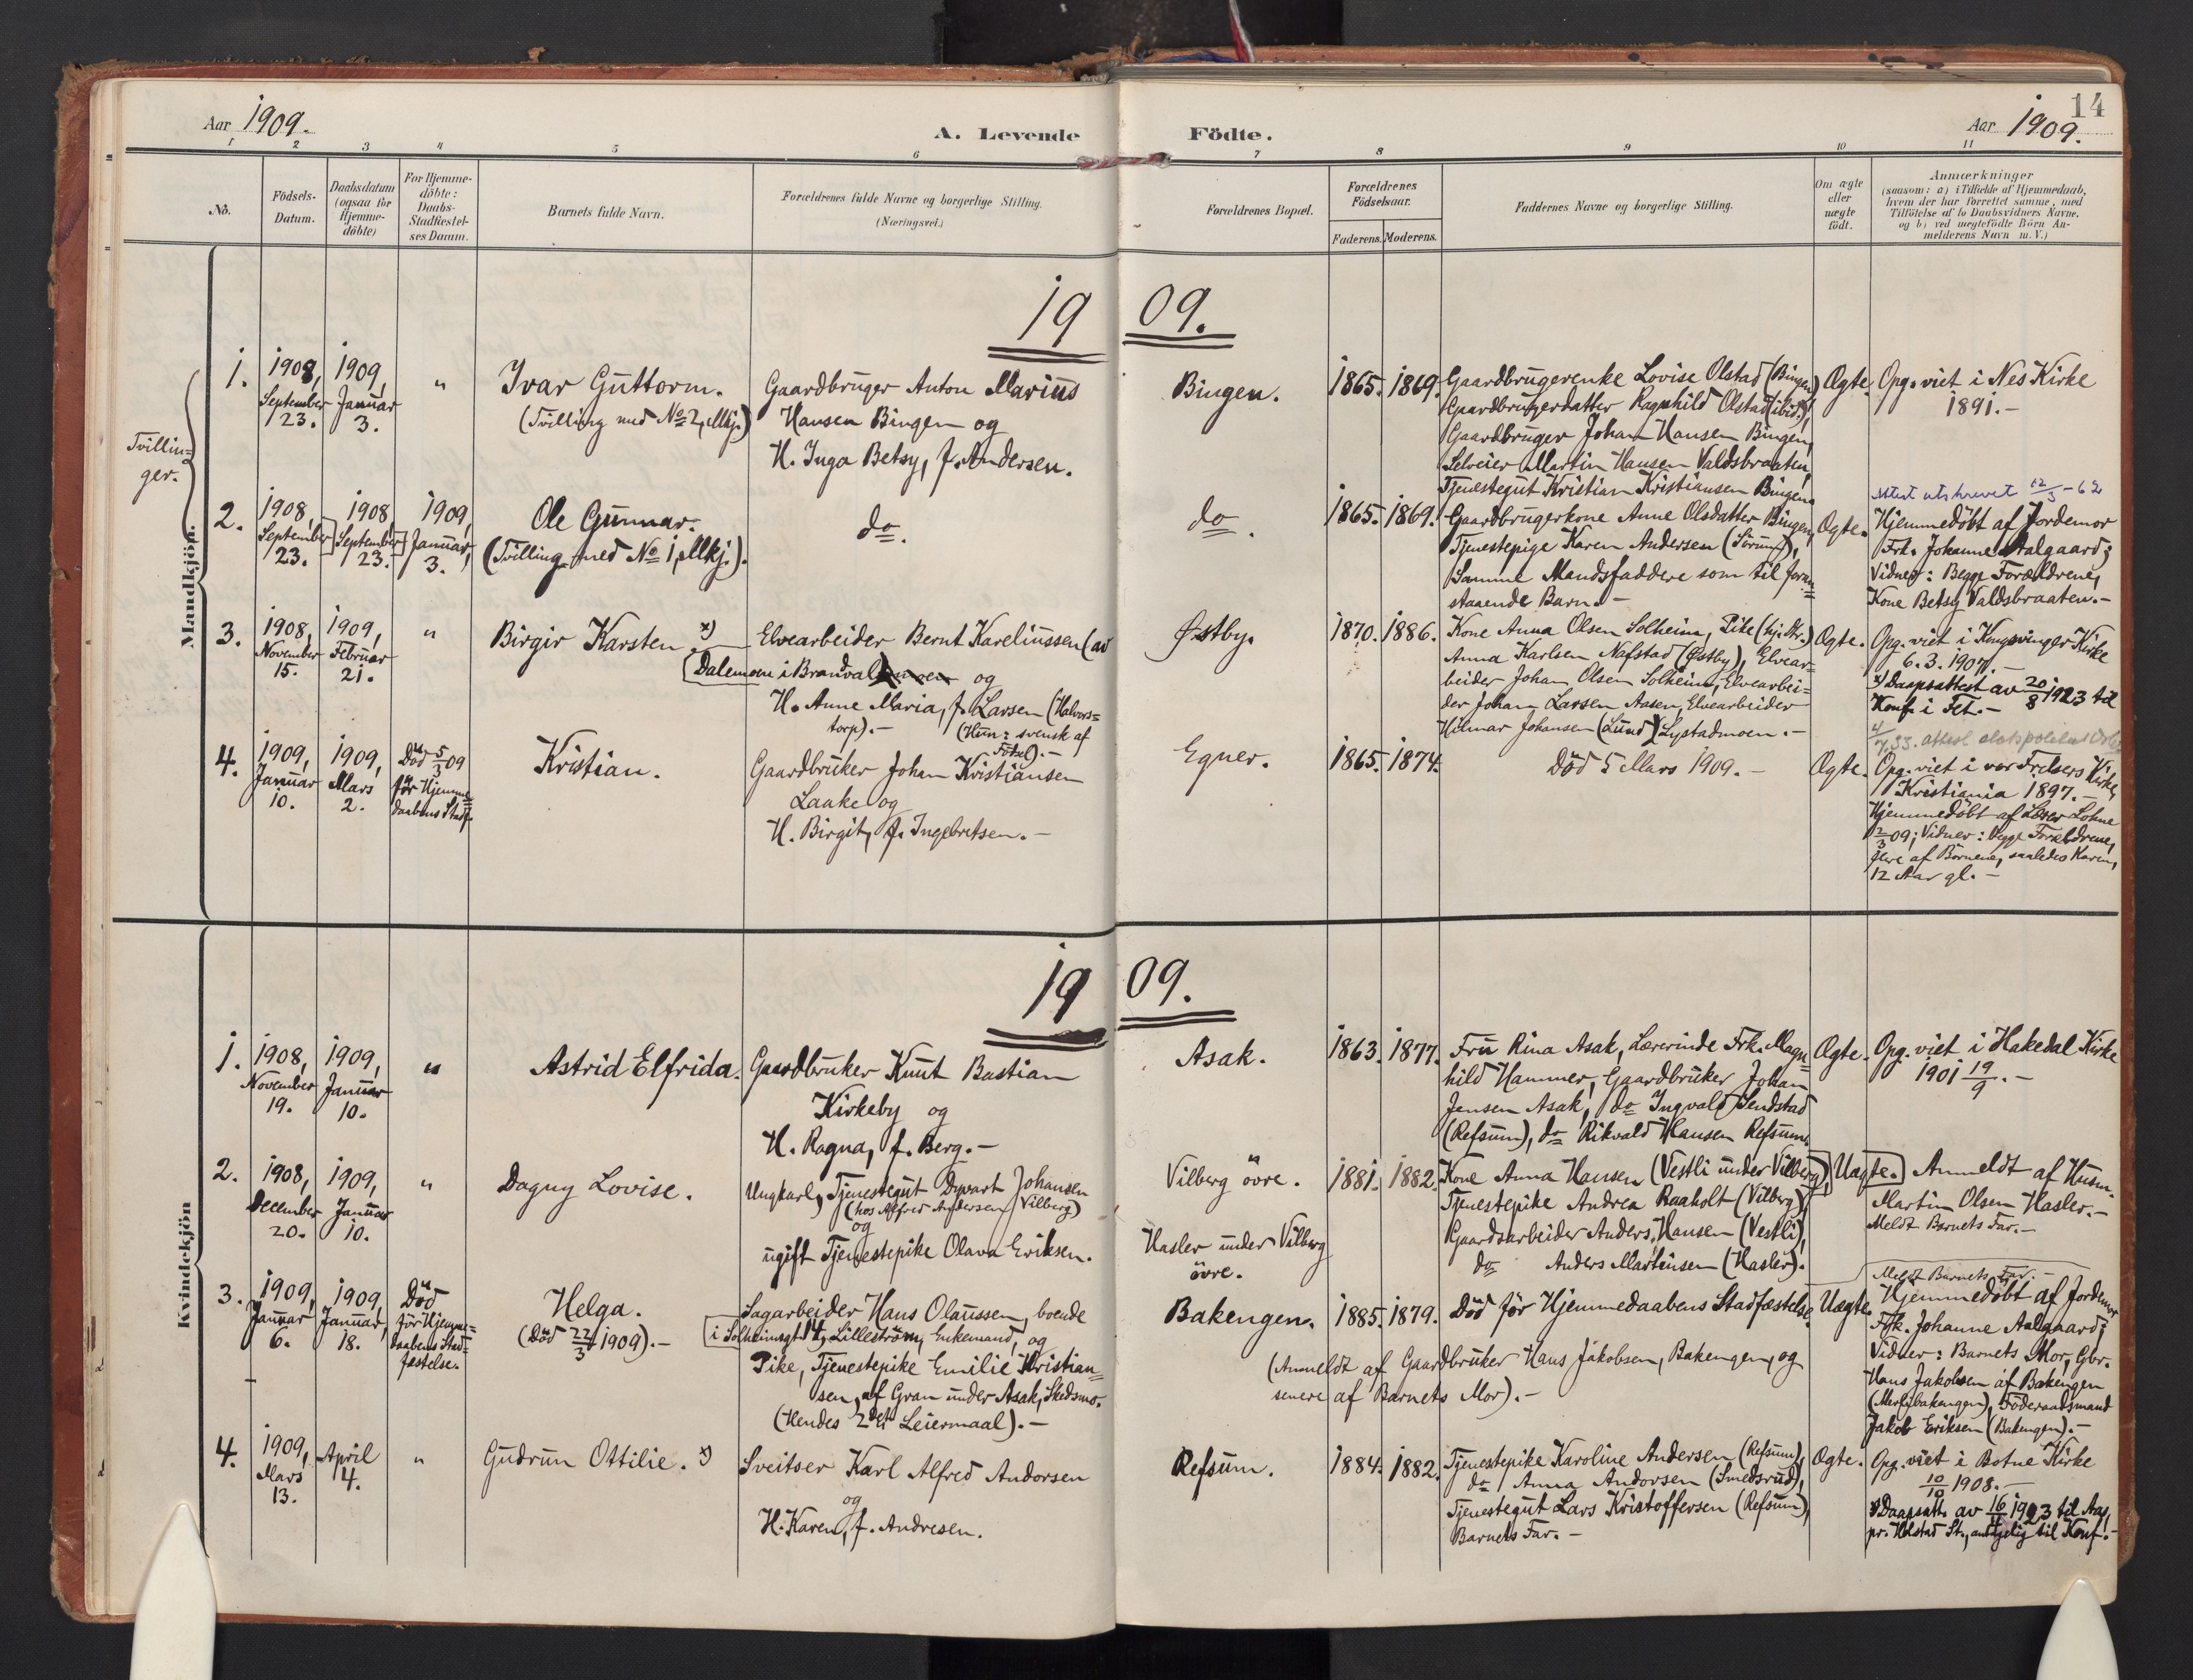 14
Aar 1909.
A. Levende Födte.
Aar 1909.
1 2 3 4 5 6 7 8 9 10 11
No.
Födsels-
Datum.
Daabsdatum
(ogsaa for
Hjemme-
döbte)
For Hjemme-
döbte:
Daabs-
Stadfæstel-
ses Datum.
Barnets fulde Navn.
Forældrenes fulde Navne og borgerlige Stilling.
(Næringsvei.)
Forældrenes Bopæl.
Forældrenes
Födselsaar.
Faderens. Moderens.
Faddernes Navne og borgerlige Stilling.
Om ægte
eller
uægte
födt.
Anmærkninger
(saasom: a) i Tilfælde af Hjemmedaab,
hvem der har forrettet samme, med
Tilföielse af to Daabsvidners Navne,
og b) ved uægtefödte Börn An-
melderens Navn m. V.)
Mandkjön.
1909.
Tvillin=
ger.
1.
1908,
September
23.
1909,
Januar
3.
"
Ivar Guttorm.
(Tvilling med No 2, Mkj.)
Gaardbruger Anton Marius
Hansen Bingen og
H. Inga Betsy, f. Andersen.
Bingen.
1865. 1869.
Gaardbrugerenke Lovise Olstad (Bingen)
Gaardbrugerdatter Ragnhild Olstad (ibid.),
Gaardbruger Johan Hansen Bingen,
Selveier Martin Hansen Valdsbraaten,
Tjenestegut Kristian Kristiansen Bingen.
Ægte.
Opg. viet i Nes Kirke
1891.-
2.
1908,
September
23.
1908
September
23.
1909,
Januar,
3.
Ole Gunnar.
(Tvilling med No 1, Mkj.).
do.
do.
1865. 1869.
Gaardbrugerkone Anne Olsdatter Bingen,
Tjenestepige Karen Andersen (Sörum),
Samme Mandsfaddere som til foran=
staaende Barn.-
Ægte.
Attest utskrevet 12/3-62
Hjemmedöbt af Jordemor
Frk. Johanne Aalgaard;
Vidner: Begge Forældrene,
Kone Betsy Valdsbraaten.-
3.
1908,
November
15.
1909,
Februar
21.
"
Birgir Karsten x)
Elvearbeider Bernt Kareliussen (av
Dalemoen i Brandval og
H. Anne Maria, f. Larsen (Halvors=
torp).-
(Hun: svensk af
Födsel).-
Østby.
1870. 1886.
Kone Anna Olsen Solheim, Pike (hj. Str.)
Anna Karlsen Nafstad (Østby), Elvear=
beider Johan Olsen Solheim, Elvearbei=
der Johan Larsen Aasen, Elvearbeider
Hilmar Johansen (Lund) Lystadmoen.-
Ægte.
Opg. viet i Kongsvinger Kirke
6.3.1907.-
x) Daapsattest av 20/8 1923 til
Konf. i Fet.-
4.
1909,
Januar
10.
1909,
Mars
2.
Död 5/3 09
för Hjemme=
daabens Stadf.
Kristian.
Gaardbruker Johan Kristiansen
Laake og
H. Birgit, f. Ingebretsen.-
Egner.
1865. 1874.
Död 5 Mars 1909.-
Ægte.
4/7.33. attest
Opg. viet i vor Frelsers Kirke,
Kristiania 1897.-
Hjemmedöbt af Lærer Lohne
2/3 09; Vidner: begge Forældrene,
flere af Börnene, saaledes Karen,
12 Aar gl.-
Kvindekjön
1909.
1.
1908,
November
19.
1909,
Januar
10.
"
Astrid Elfrida.
Gaardbruker Knut Bastian
Kirkeby og
H. Ragna, f. Berg.-
Asak.
1863. 1877.
Fru Rina Asak, Lærerinde Frk. Magn=
hild Hammer, Gaardbruker Johan
Jensen Asak, do Ingvald Sendstad
(Refsum), do Rikvald Hansen Refsum.
Ægte.
Opg. viet i Hakedal Kirke
1901 19/9.-
2.
1908,
December
20.
1909,
Januar
10.
"
Dagny Lovise.
Ungkarl, Tjenestegut Dyvart Johansen
(hos Alfred Andersen Vilberg)
og
ugift Tjenestepike Olava Eriksen.
Vilberg övre.
Hasler under Vilberg
övre.
1881. 1882.
Kone Anna Hansen (Vestli under Vilberg),
Tjenestepike Andrea Raaholt (Vilberg),
Gaardsarbeider Anders Hansen (Vestli),
do Anders Martinsen (Hasler).
Uægte.
Anmeldt af Husm.
Martin Olsen Hasler.-
Meldt Barnets Far.-
3.
1909,
Januar
6.
1909,
Januar,
18.
Död
för Hjemme=
daabens Stad=
fæstelse.
Helga.
(Död 22/3 1909).-
Sagarbeider Hans Olaussen, boende
i Solheimsgt. 14, Lilleström, Enkemand, og
Pike, Tjenestepike Emilie Kristian=
sen, af Gran under Asak, Skedsmo.
(Hendes 2det Leiermaal).-
Bakengen.
1885. 1879.
Död för Hjemmedaabens Stadfæstelse.
(Anmeldt af Gaardbruker Hans Jakobsen, Bakengen, og
senere af Barnets Mor).-
Uægte.
Meldt Barnets Far.-
Hjemmedöbt af Jordemor
Frk. Johanne Aalgaard;
Vidner: Barnets Mor, Gbr.
Hans Jakobsen af Bakengen
(Merlibakengen), Föderaadsmand
Jakob Eriksen (Bakengen).-
4.
1909,
Mars
13.
April
4.
"
Gudrun Ottilie. x)
Sveitser Karl Alfred Andorsen
og
H. Karen, f. Andresen.
Refsum.
1884. 1882.
Tjenestepike Karoline Andersen (Refsum),
do Anna Andorsen (Smedsrud),
Tjenestegut Lars Kristoffersen (Refsum),
Barnets Far.-
Ægte.
Opg. viet i Botne Kirke
10/10 1908.-
x) Daapsatt. av 16/ 1923 til Aas,
pr. Holstad St., til Konf.-